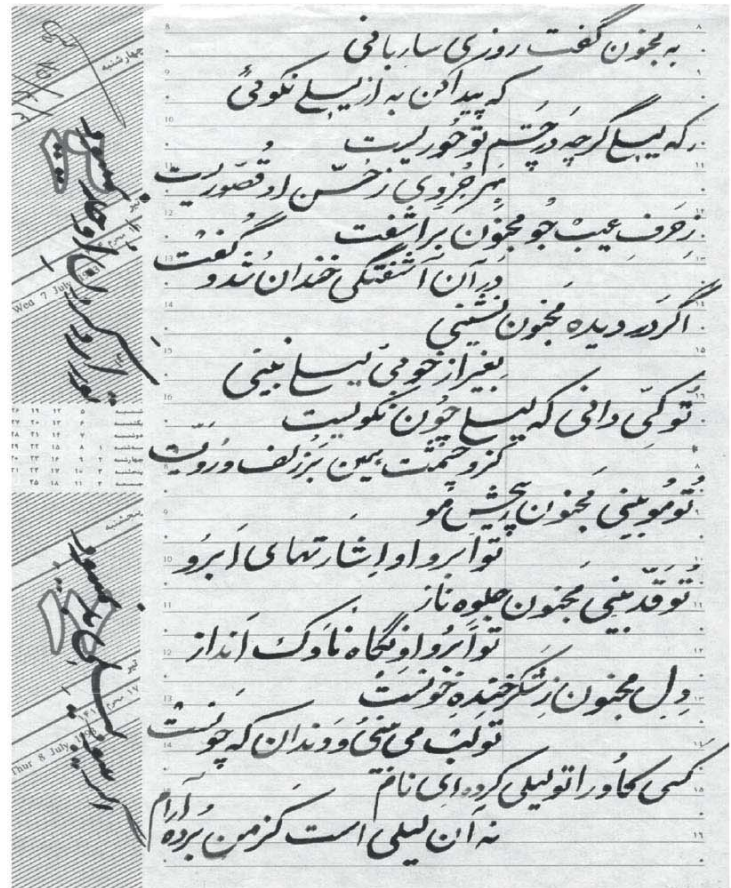 به مجنون گفت روزی ساربانی
که پیدا کن به از لیلی نکوئی
که لیلی گرچه در چشم تو حوریست
بهر جزوی ز حسن او قصوریست
ز حرف عیب جو مجنون برآشفت
در آن آشفتگی خندان شد و گفت
اگر در دیده مجنون نشینی
بغیر از خوبی لیلی نبینی
تو کی دانی که لیلی چون نکوییست
کزو چشمت همین بر زلف و رویست
تو مو بینی مجنون پیچش مو
تو ابرو او اشارتهای ابرو
تو قد بینی مجنون جلوه ناز
تو ابرو او نگاه ناوک انداز
دل مجنون ز شکر خنده خونست
تو لب می بینی و دندان که چونست
کسی کاو را تو لیلی کرده ای نام
نه آن لیلی است کز من برده آرام
چهارشنبه
Wed 7 July
پنجشنبه
Thur 8 July